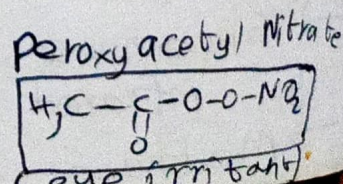 Peroxyacetyl Nitrate
H₃C-C-O-O-NO₂
O
(eye irritant)